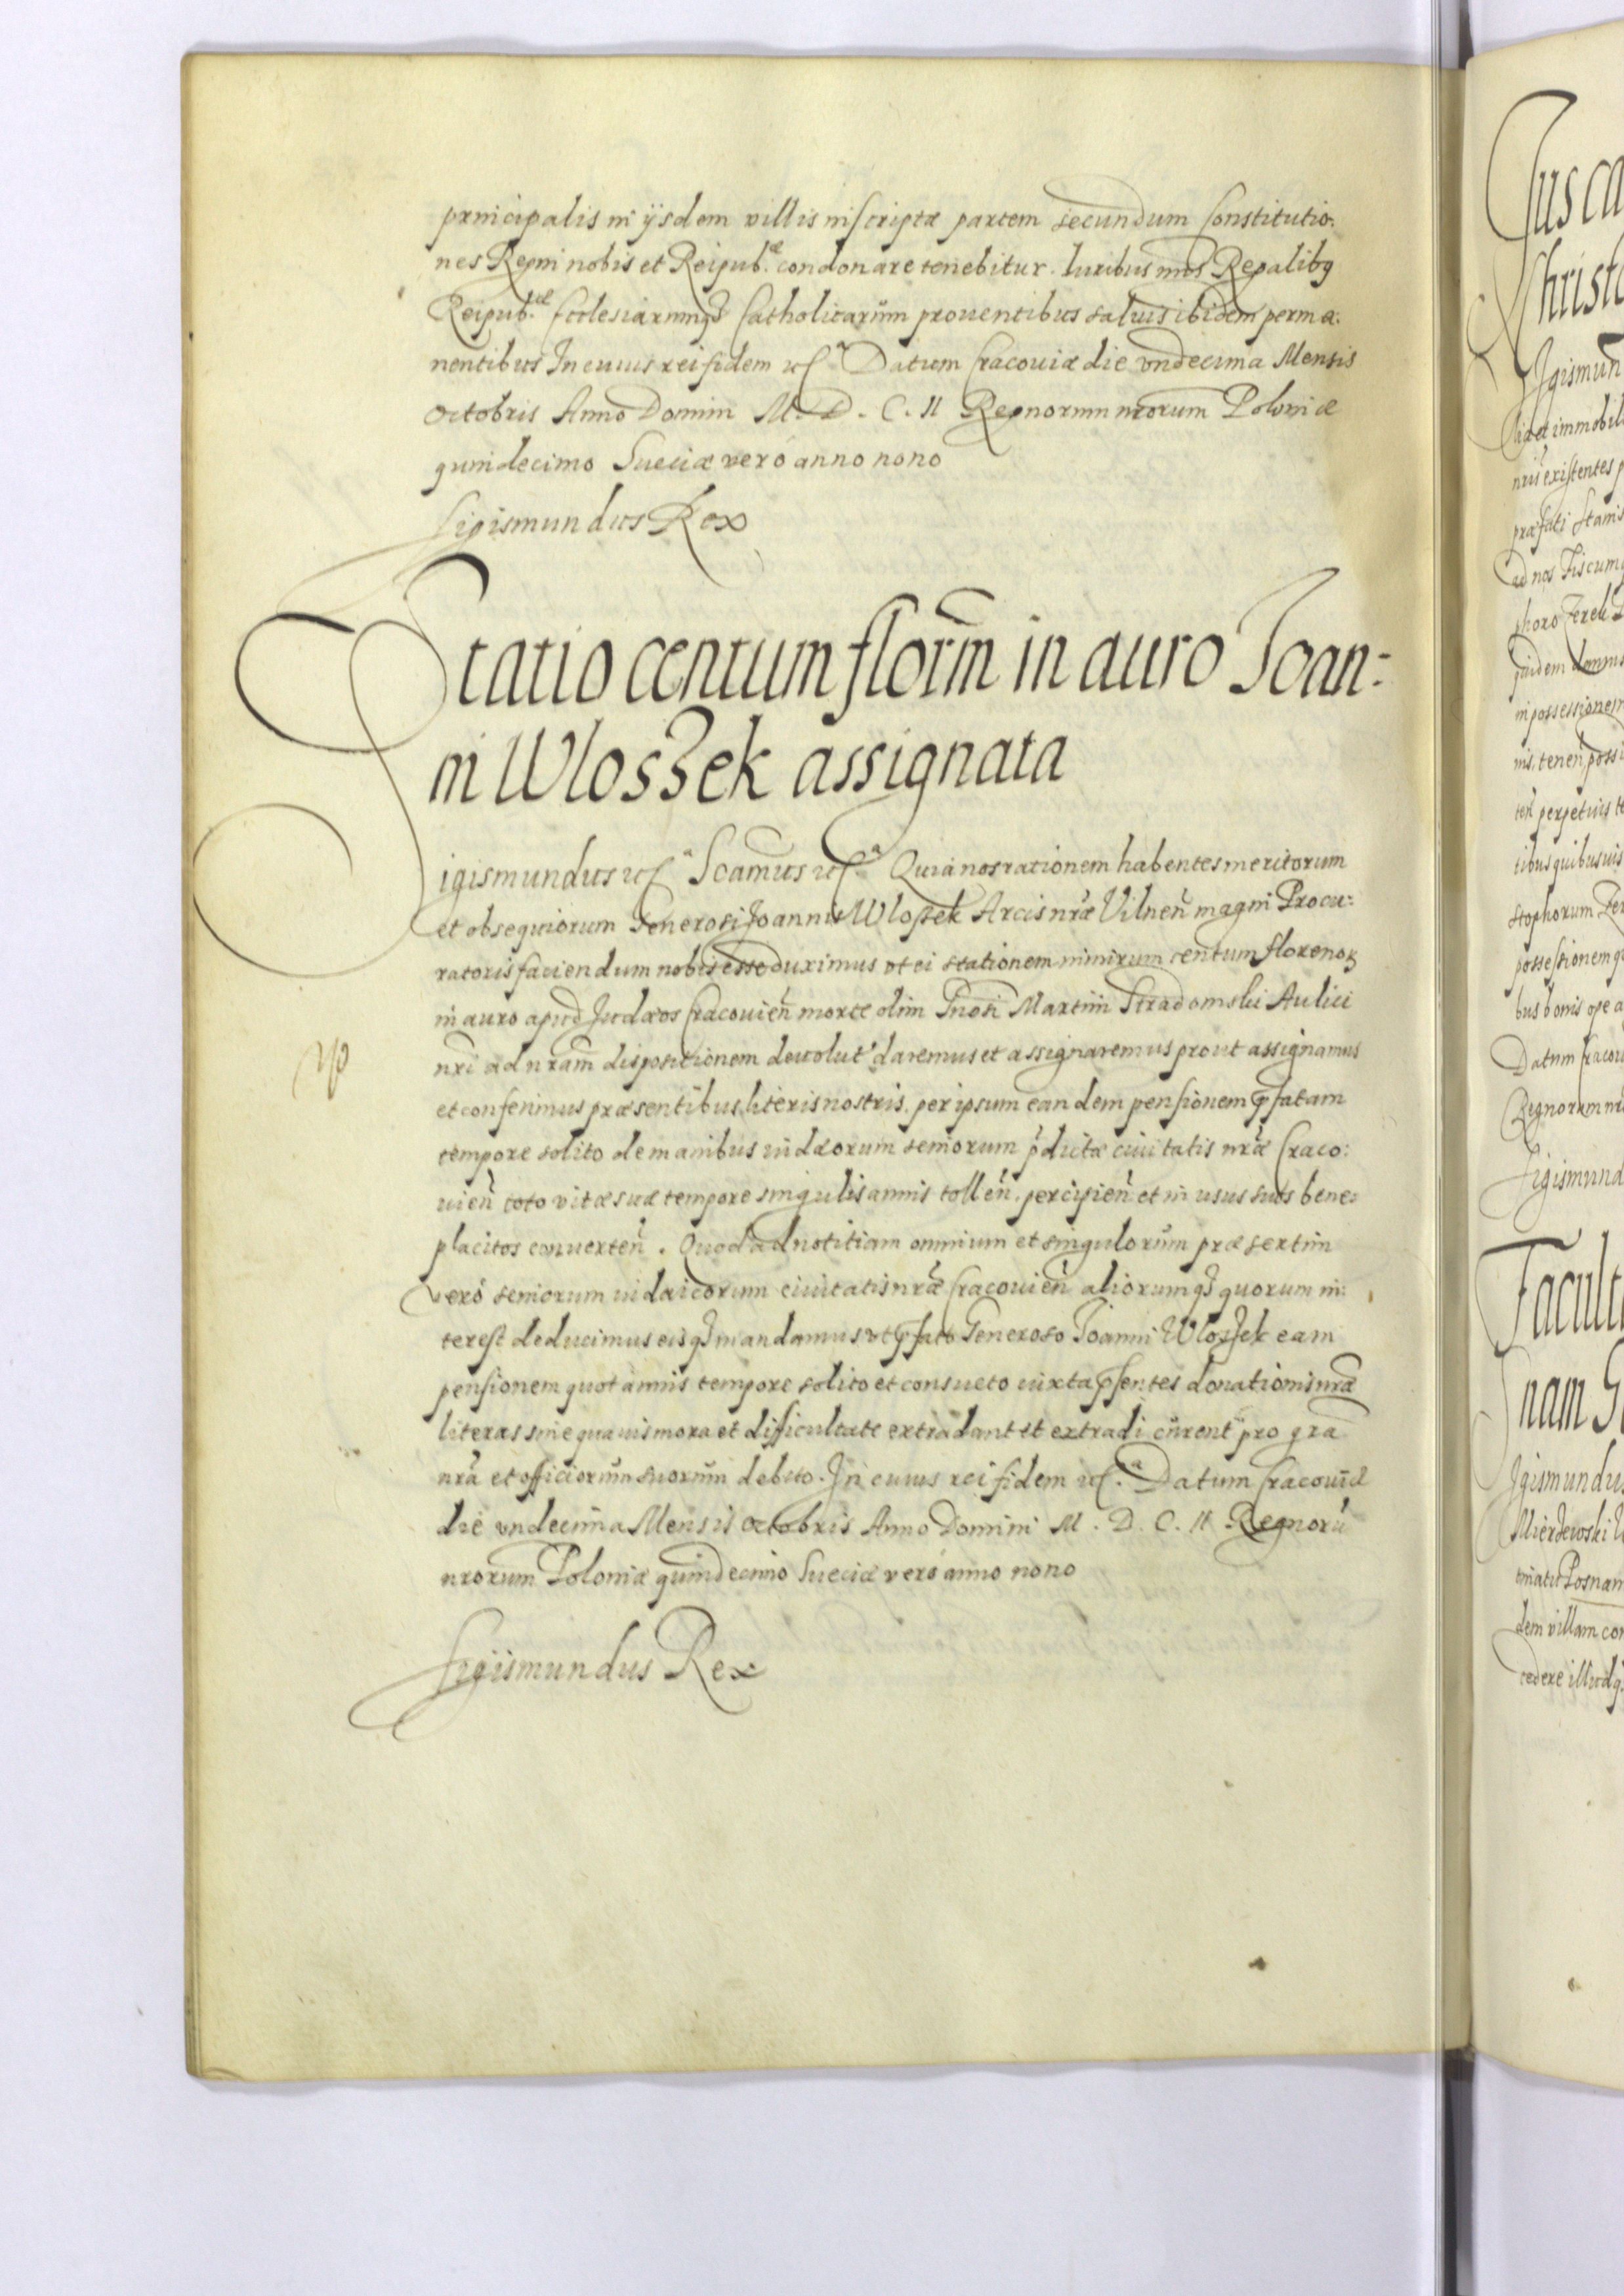 principalis in ijsdem villis inscriptæ partem secundum Constitutio:
nes Regni nobis et Reipub:æ condonare tenebitur. Iuribus nr̃is Regalibq
Reipub:æ Ecclesiarumq3 Catholicarum prouentibus saluis ibidem perma:
nentibus In cuius rei fidem Datum Cracouiæ die vndecima Mensis
Octobris Anno Domini M. D. C. II Regnorum nrorum Poloniæ
quindecimo Sueciæ vero anno nono
Sigismundus Rex
Statio centum florm̃ in auro Joan:
ni Wlosszek assignata
Sigismundus Quia nos rationem habentes meritorum
et obsequiorum Generosi Joannis Wlossek Arcis nr̃æ Vilnen̄ magni Procu:
ratoris faciendum nobis esse duximus vt ei stationem nimirum centum florenoꝝ
in auro apud Judæos Cracouien̄ morte olim Gnosi Martini Stradomski Aulici
nri ad nram̃ dispositionem deuolut' daremus et assignaremus prout assignamus
et conferimus præsentibus literis nostris. per ipsum eandem pensionem p̱fatam
tempore solito de manibus iudæorum seniorum p̃dictæ ciuitatis nr̃æ Craco:
uien̄ toto vitæ suæ tempore singulis annis tollen̄. percipien̄ et in usus suos bene:
placitos conuerten̄. Quod ad notitiam omnium et singulorum præsertim
vero seniorum iudaicorum ciuitatis nr̃æ Cracouien̄ aliorumq3 quorum in:
terest deducimus eisq3 mandamus vt p̱fato Generoso Joanni Wlosszek eam
pensionem quotannis tempore solito et consueto iuxta p̱sentes donationis nræ
literas sine quauis mora et difficultate extradant et extradi curent pro gra
nr̃a et officiorum suorum debito. In cuius rei fidem Datum Cracouiæ
die vndecima Mensis Octobris Anno Domini M. D. C. II Regnorū
nrorum Poloniæ quindecimo Sueciæ vero anno nono
Sigismundus Rex